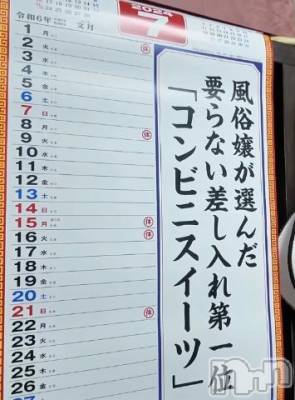 2024
7
令和6年 文月
風俗嬢が選んだ
要らない差し入れ第一位
「コンビニスイーツ」
1 月
2 火 休
3 水
4 木
5 金
6 土
7 日
8 月
9 火 休
10 水
11 木
12 金
13 土
14 日
15 月 休
16 火 休
17 水
18 木
19 金
20 土
21 日 休
22 月
23 火
24 水
25 木
26 金
27 土